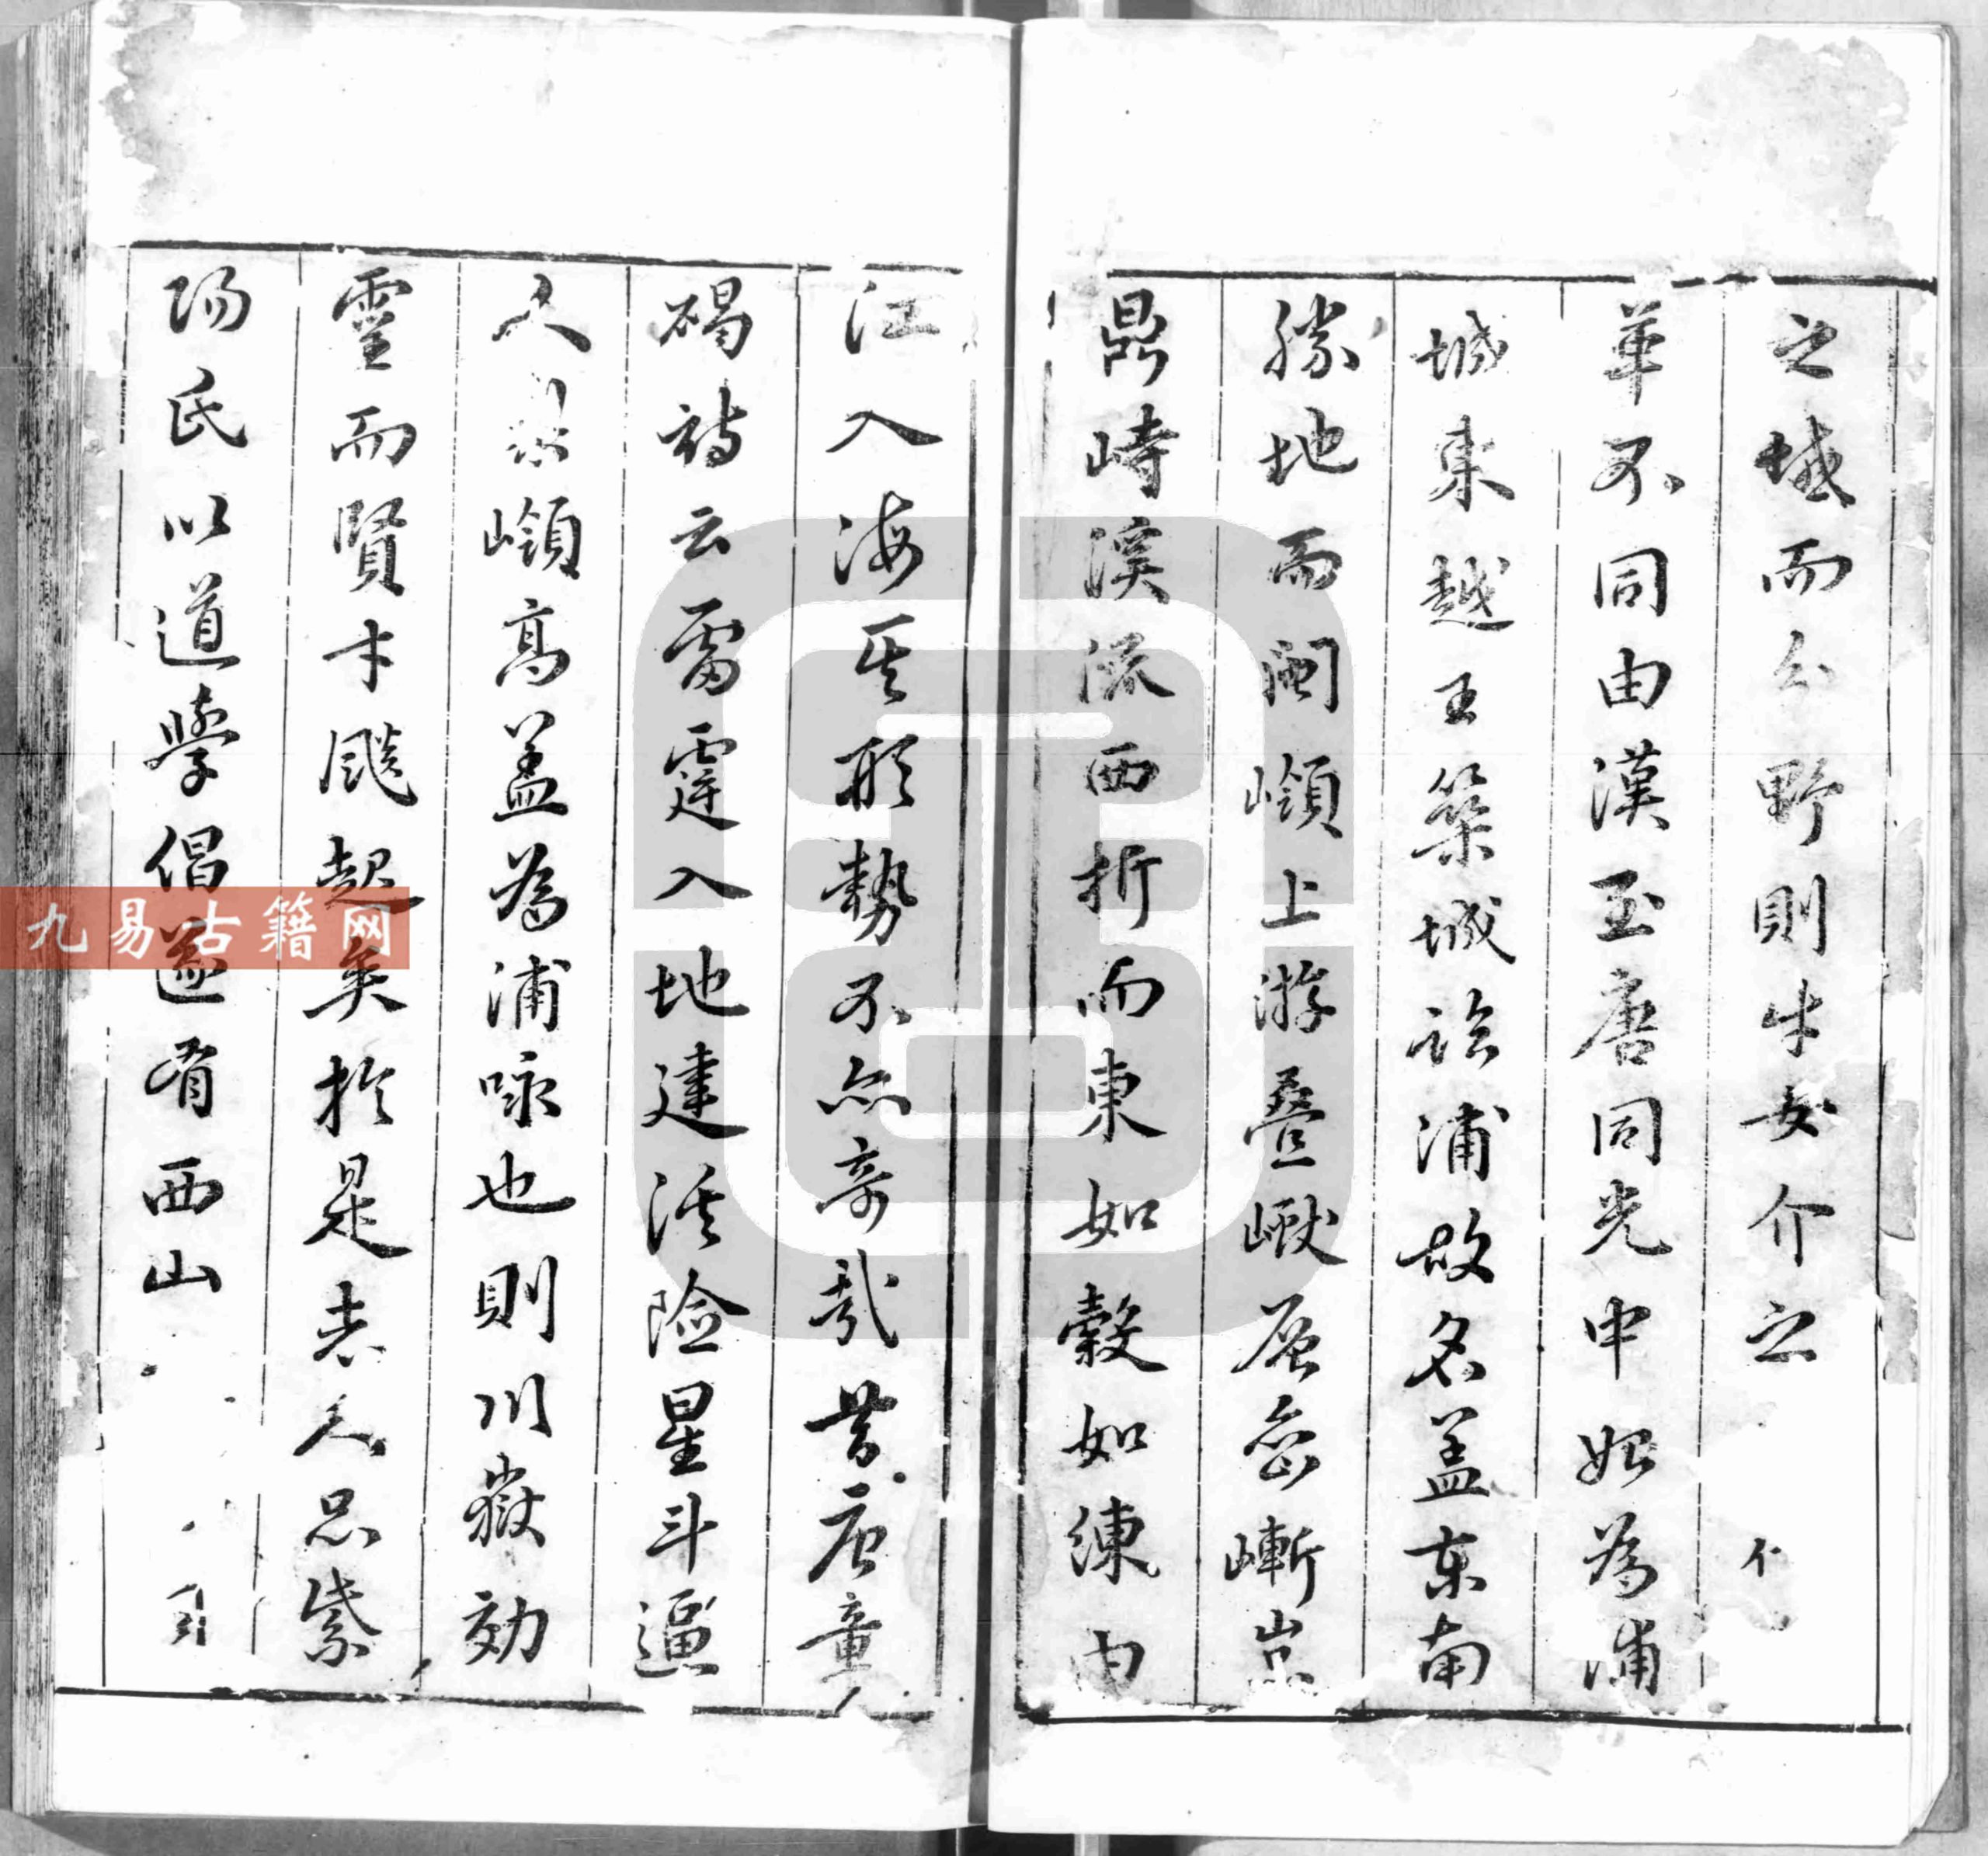 之域而分野則牛女介之
華不同由漢至唐同光中始為浦
城東越王築城詒浦故名蓋東南
勝地而閩嶺上游疊巘層巒嶄崇
鼎峙溪流西折而東如縠如練由
江入海其形勢不亦奇哉昔唐童
碣詩云雷霆入地建溪險星斗逼
人嶺高蓋為浦咏也則川嶽効
靈而賢才飈起矣於是志人思紫
陽氏以道學倡遂有西山
九易古籍网